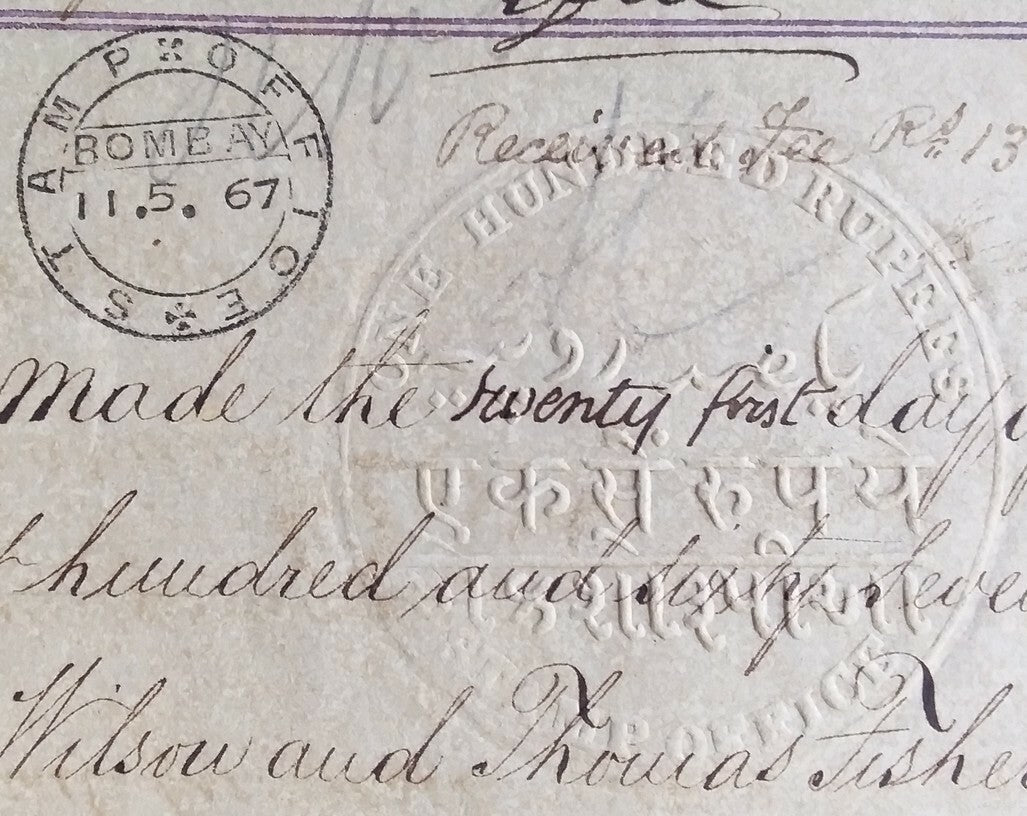 STAMP OFFICES
BOMBAY
11.5.67
Received Fee Rs 13
ONE HUNDRED RUPEES
made the twenty first day
एकसें रुपये
hundred and sixty seve
STAMP OFFICE
Wilson and Thomas Fishe